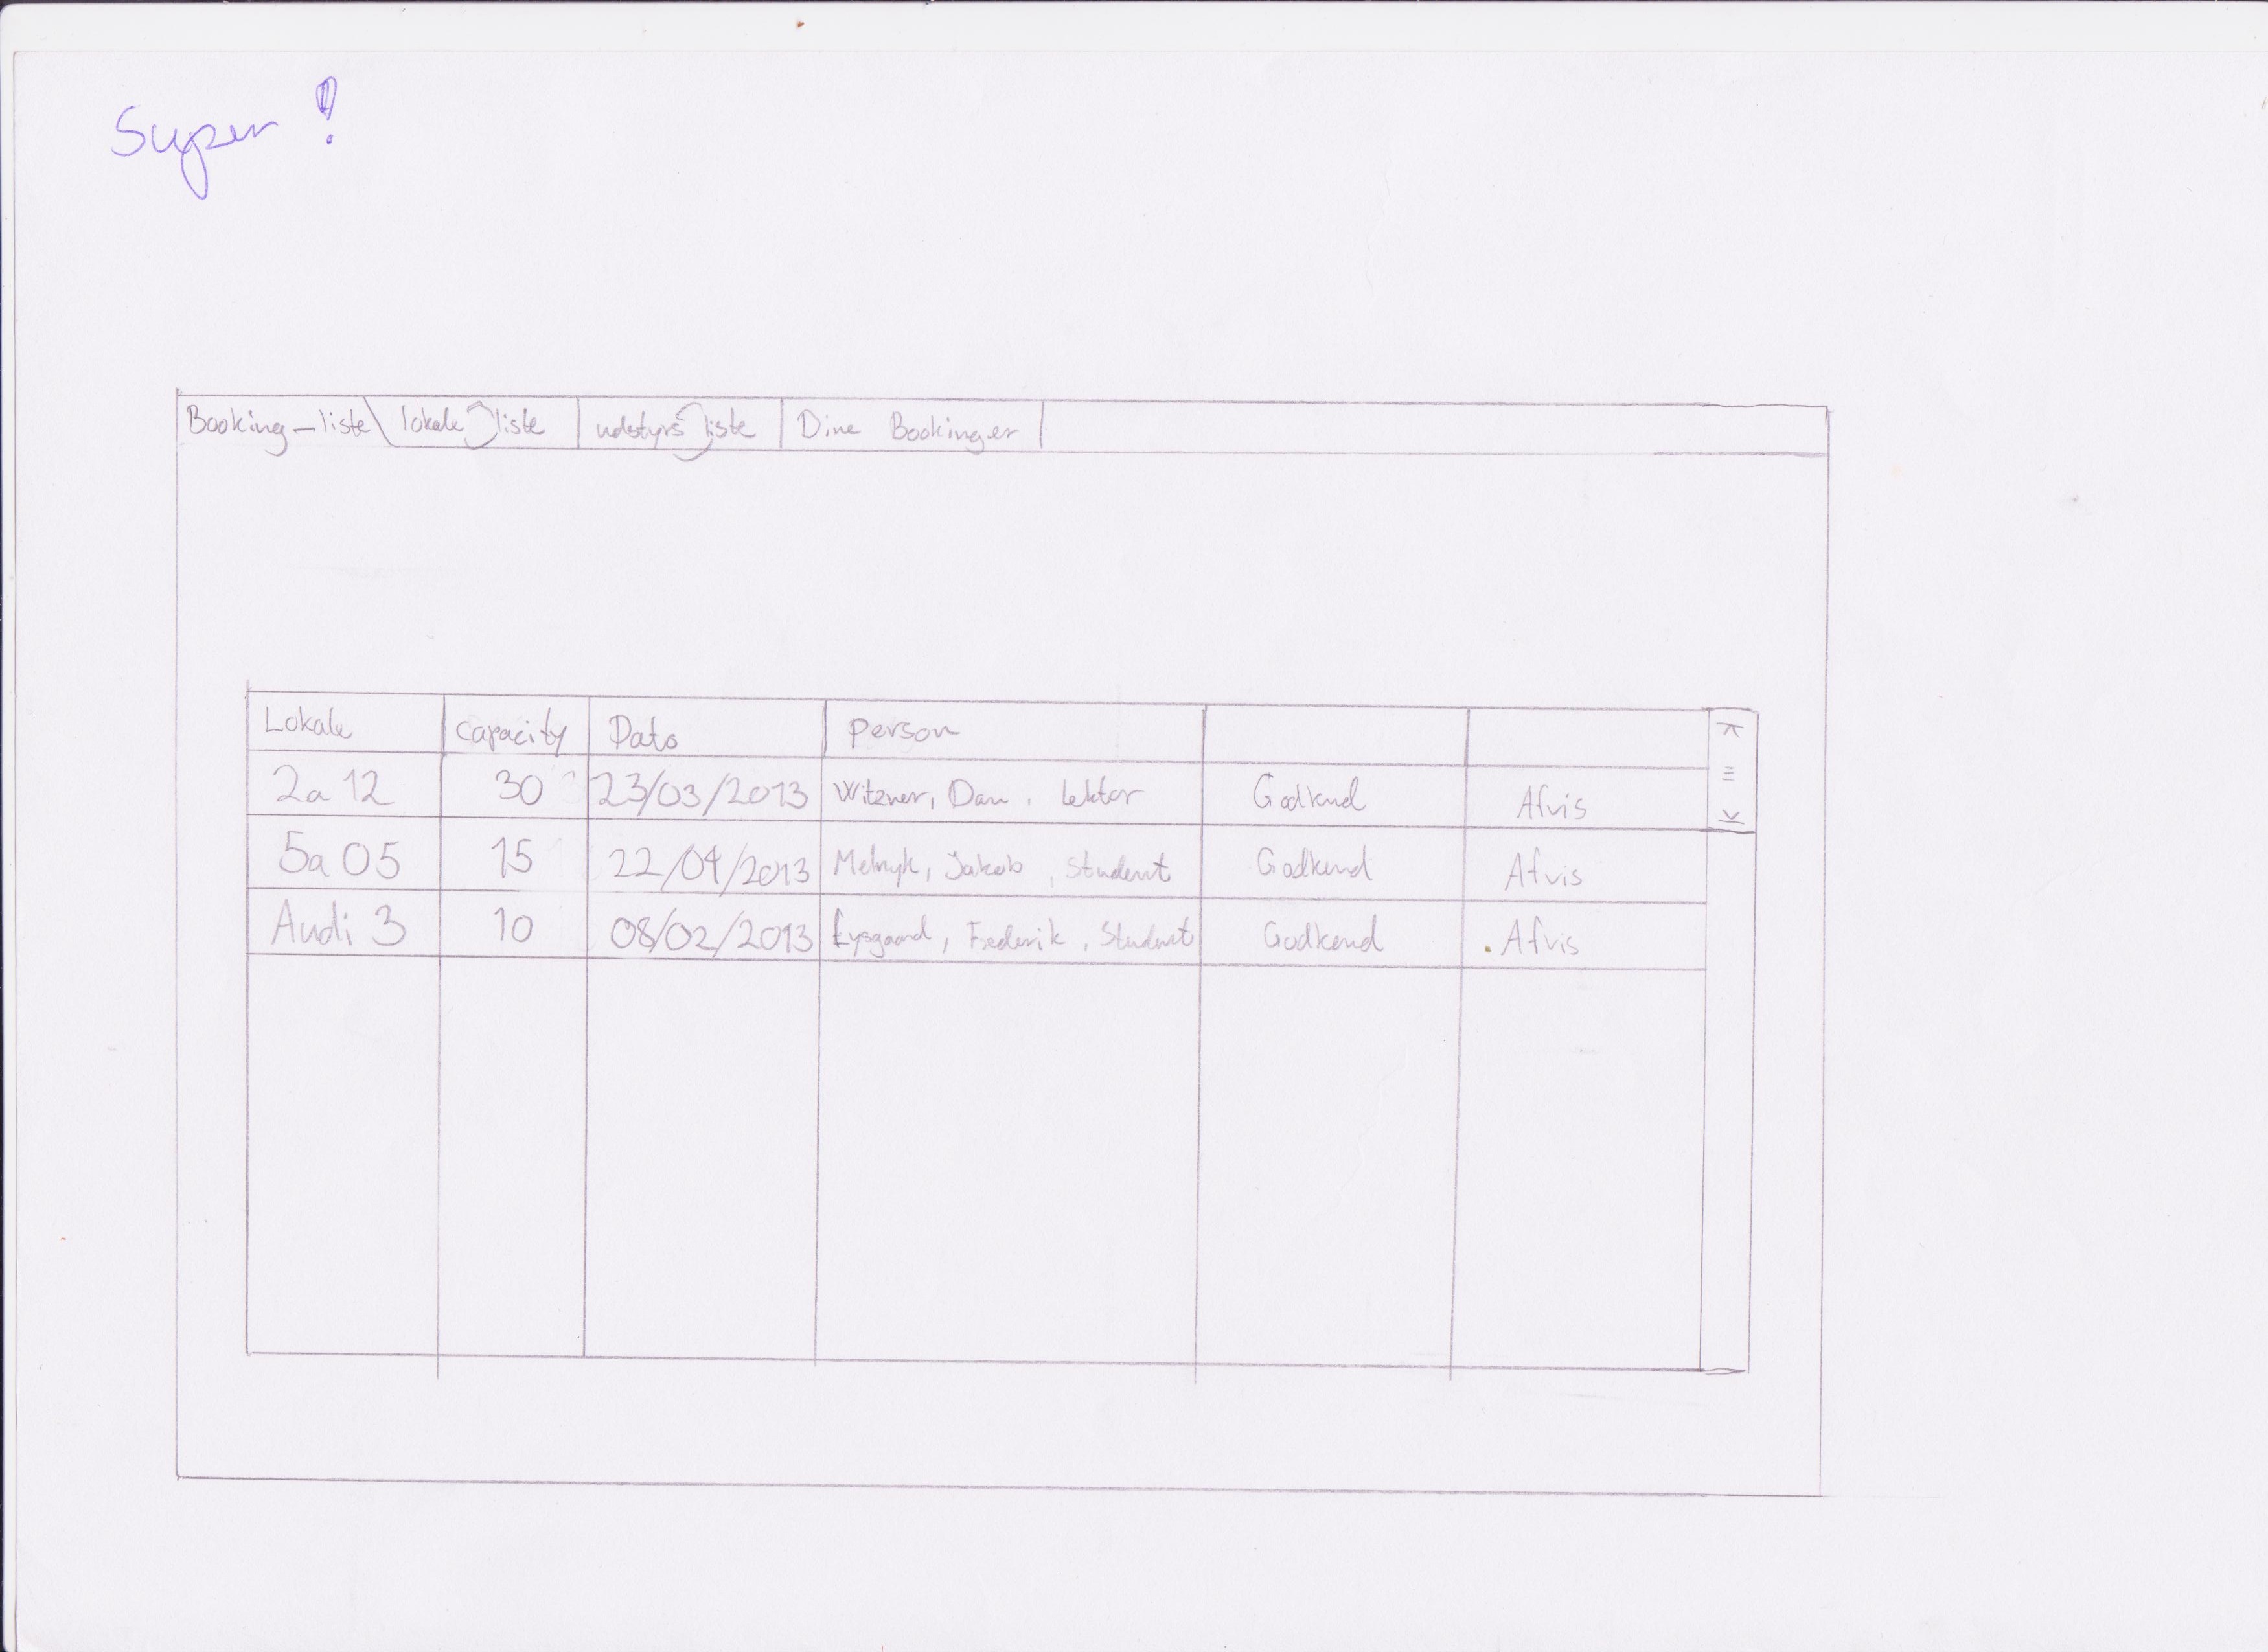 Super!
Booking-liste lokale liste udstyrs liste Dine Bookinger
Lokale capacity Dato Person
2a 12 30 23/03/2013 Witzner, Dan, Lektor Godkend Afvis
5a 05 15 22/04/2013 Melnyk, Jakob, Student Godkend Afvis
Audi 3 10 08/02/2013 Lysgaard, Frederik, Student Godkend Afvis